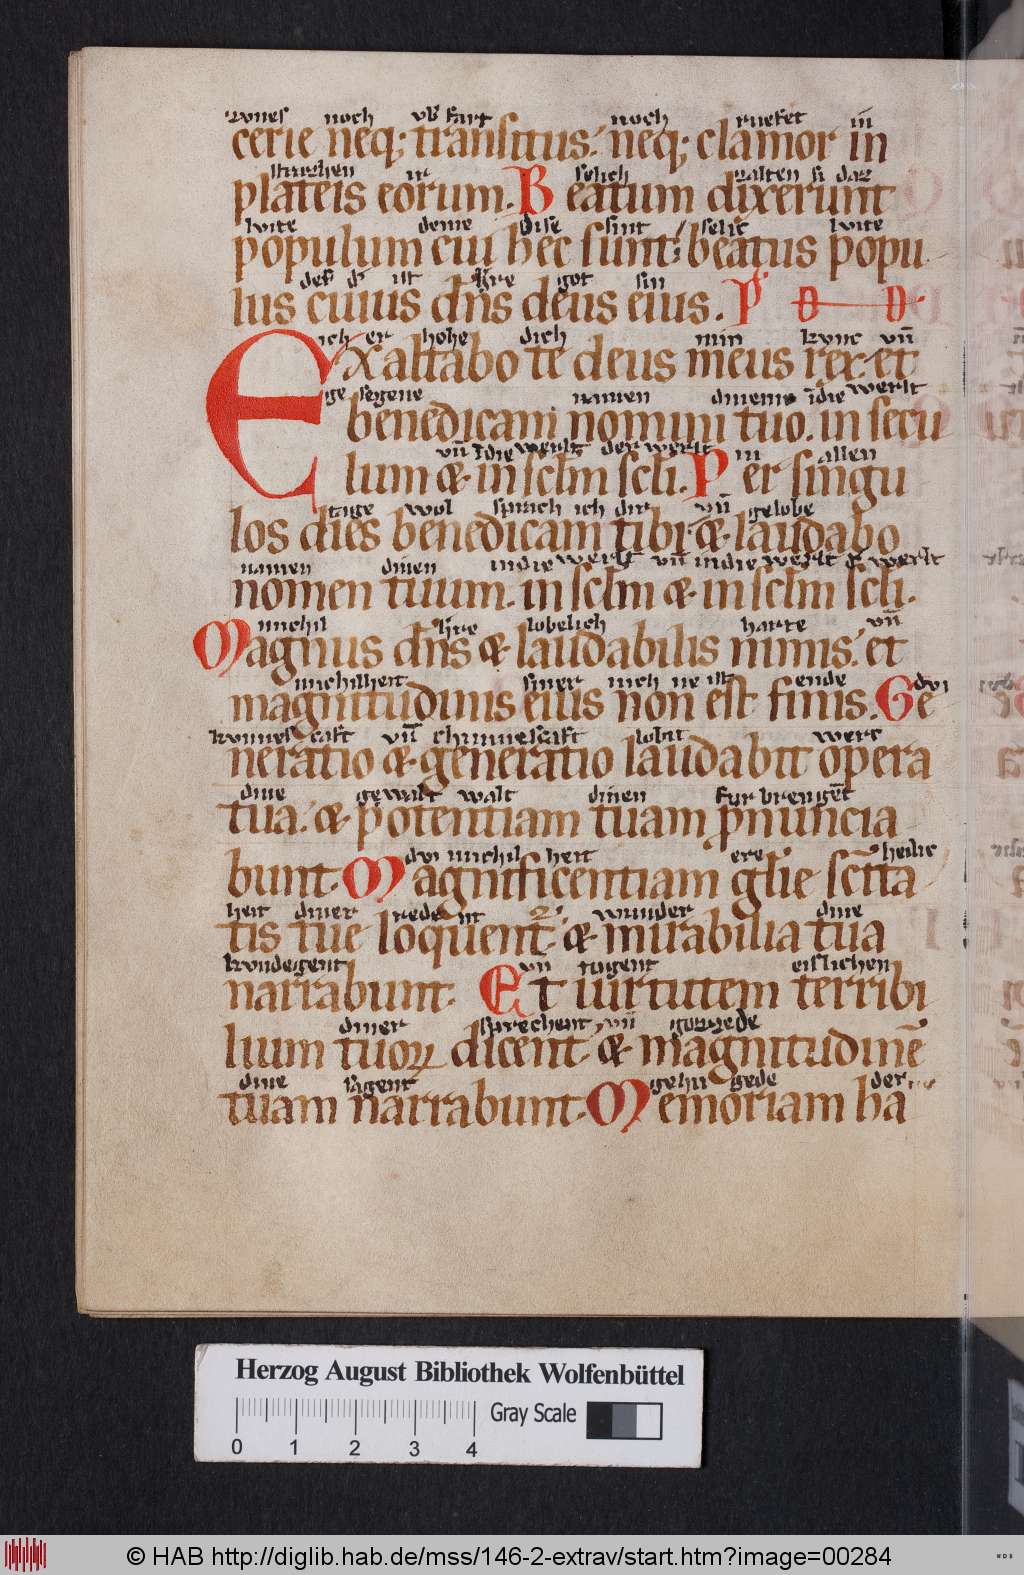 zvnes noch vb fart noch ruefet in
cerie neq; transitus. neq; clamor in
ir selich si daz
plateis eorum. Beatum dixerunt
lvite deme dise sint selic lvite
populum cui hec sunt; beatus popu
des ist hre got sin
lus cuius dñs deus eius. P D D
ich er hohe dich min kvnc vñ
Exaltabo te deus meus rex. et
ge segene namen dinem ĩ die werlt
benedicam nomini tuo. in secu
vñ ĩ die werlt der werlt in allen
lum & in sclm scli. Per singu
tage wol sprich ich dir vñ gelobe
los dies benedicam tibi. & laudabo
namen dinen in die werlt vñ in die werlt werlt
nomen tuum. in sclm & in sclm scli.
michil hre lobelich harte vñ
Magnus dñs & laudabilis nimis. et
michilheit siner nich ne ist ende dvi
magnitudinis eius non est finis. Ge
vñ lobit werc
neratio & generatio laudabit opera
dine gewalt walt dinen fur brengẽt
tua. & potentiam tuam pnuncia
dvi michil heit ere heilic
bunt. Magnificentiam glie sctita
heit diner rede wunder dine
tis tue loquent. & mirabilia tua
kvndegent vñ tugent eislichen
narrabunt. Et uirtutem terribi
diner sprechent vñ
lium tuoꝝ dicent. & magnitudinẽ
dine sagent gehu gede der
tuam narrabunt. Memoriam ha
Herzog August Bibliothek Wolfenbüttel
Gray Scale
0 1 2 3 4
© HAB http://diglib.hab.de/mss/146-2-extrav/start.htm?image=00284